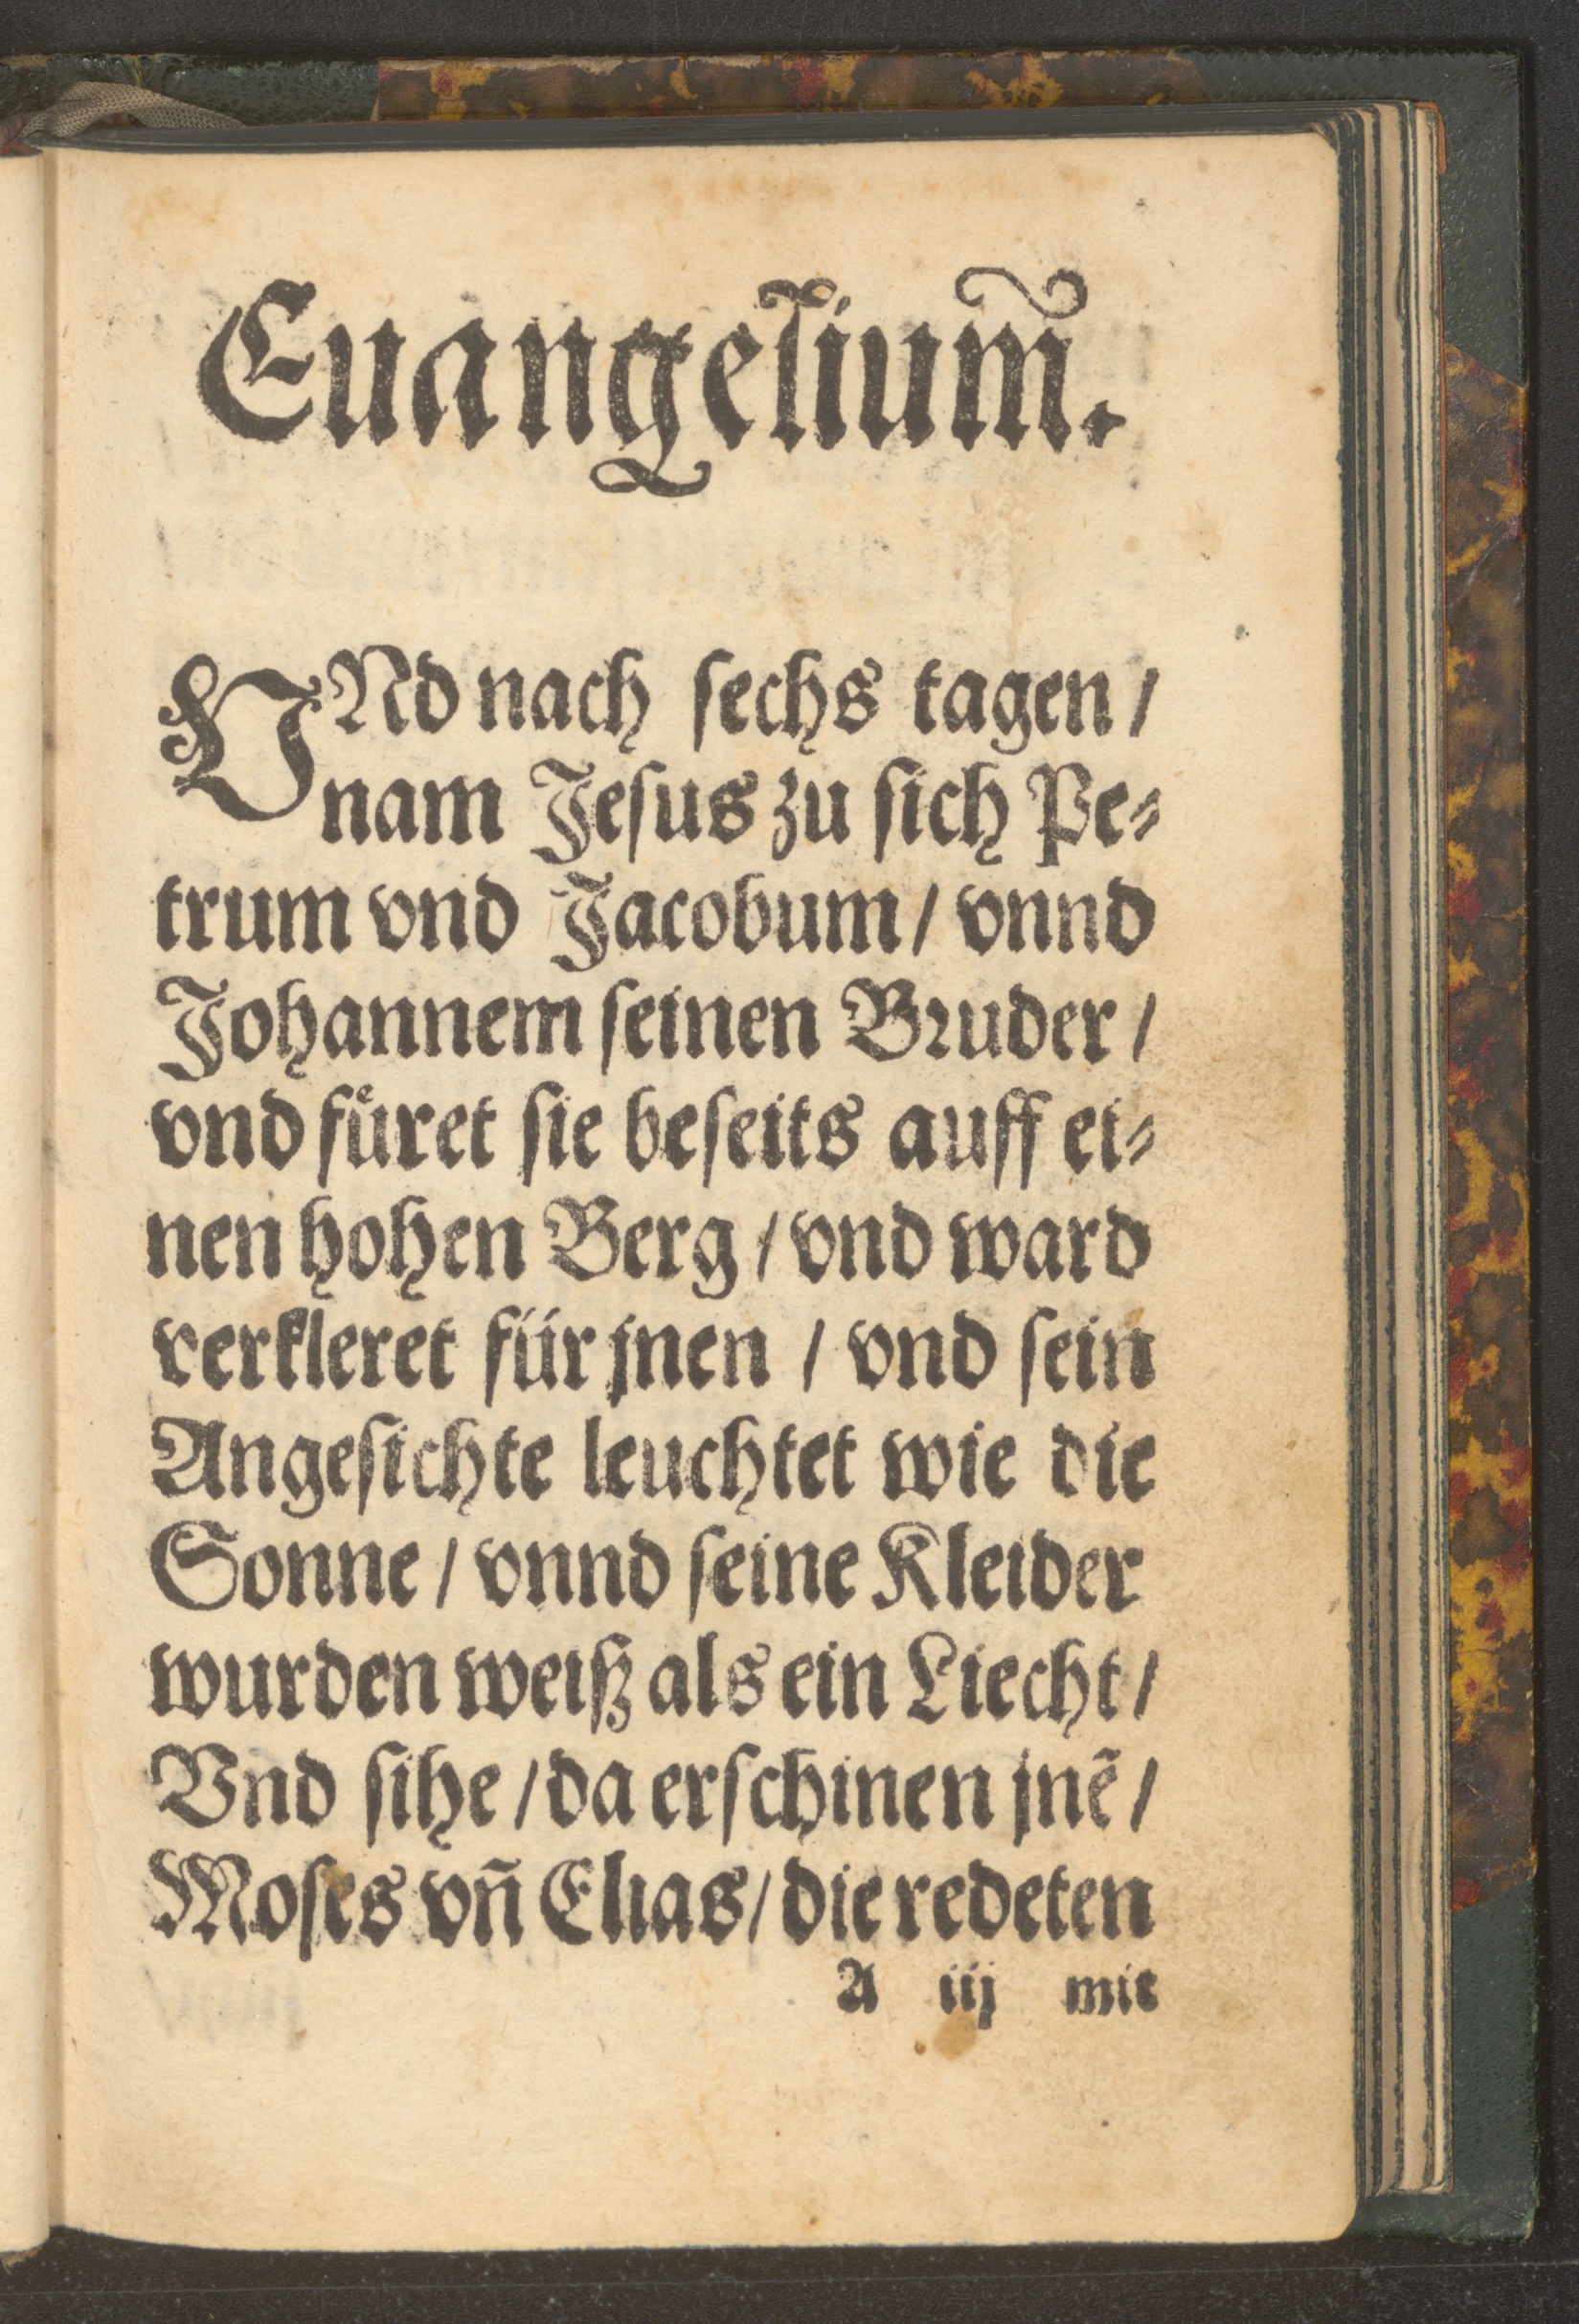 Euangelium.
VNd nach ſechs tagen /
nam Jeſus zu ſich Pe⸗
trum vnd Jacobum / vnnd
Johannem ſeinen Bꝛuder /
vnd fuͤret ſie beſeits auff ei⸗
nen hohen Berg / vnd ward
verkleret für jnen / vnd ſein
Angeſichte leuchtet wie die
Sonne / vnnd ſeine Kleider
wurden weiß als ein Liecht /
Vnd ſihe / da erſchinen jnẽ /
Moſes vñ Elias / die redeten
A iij mit